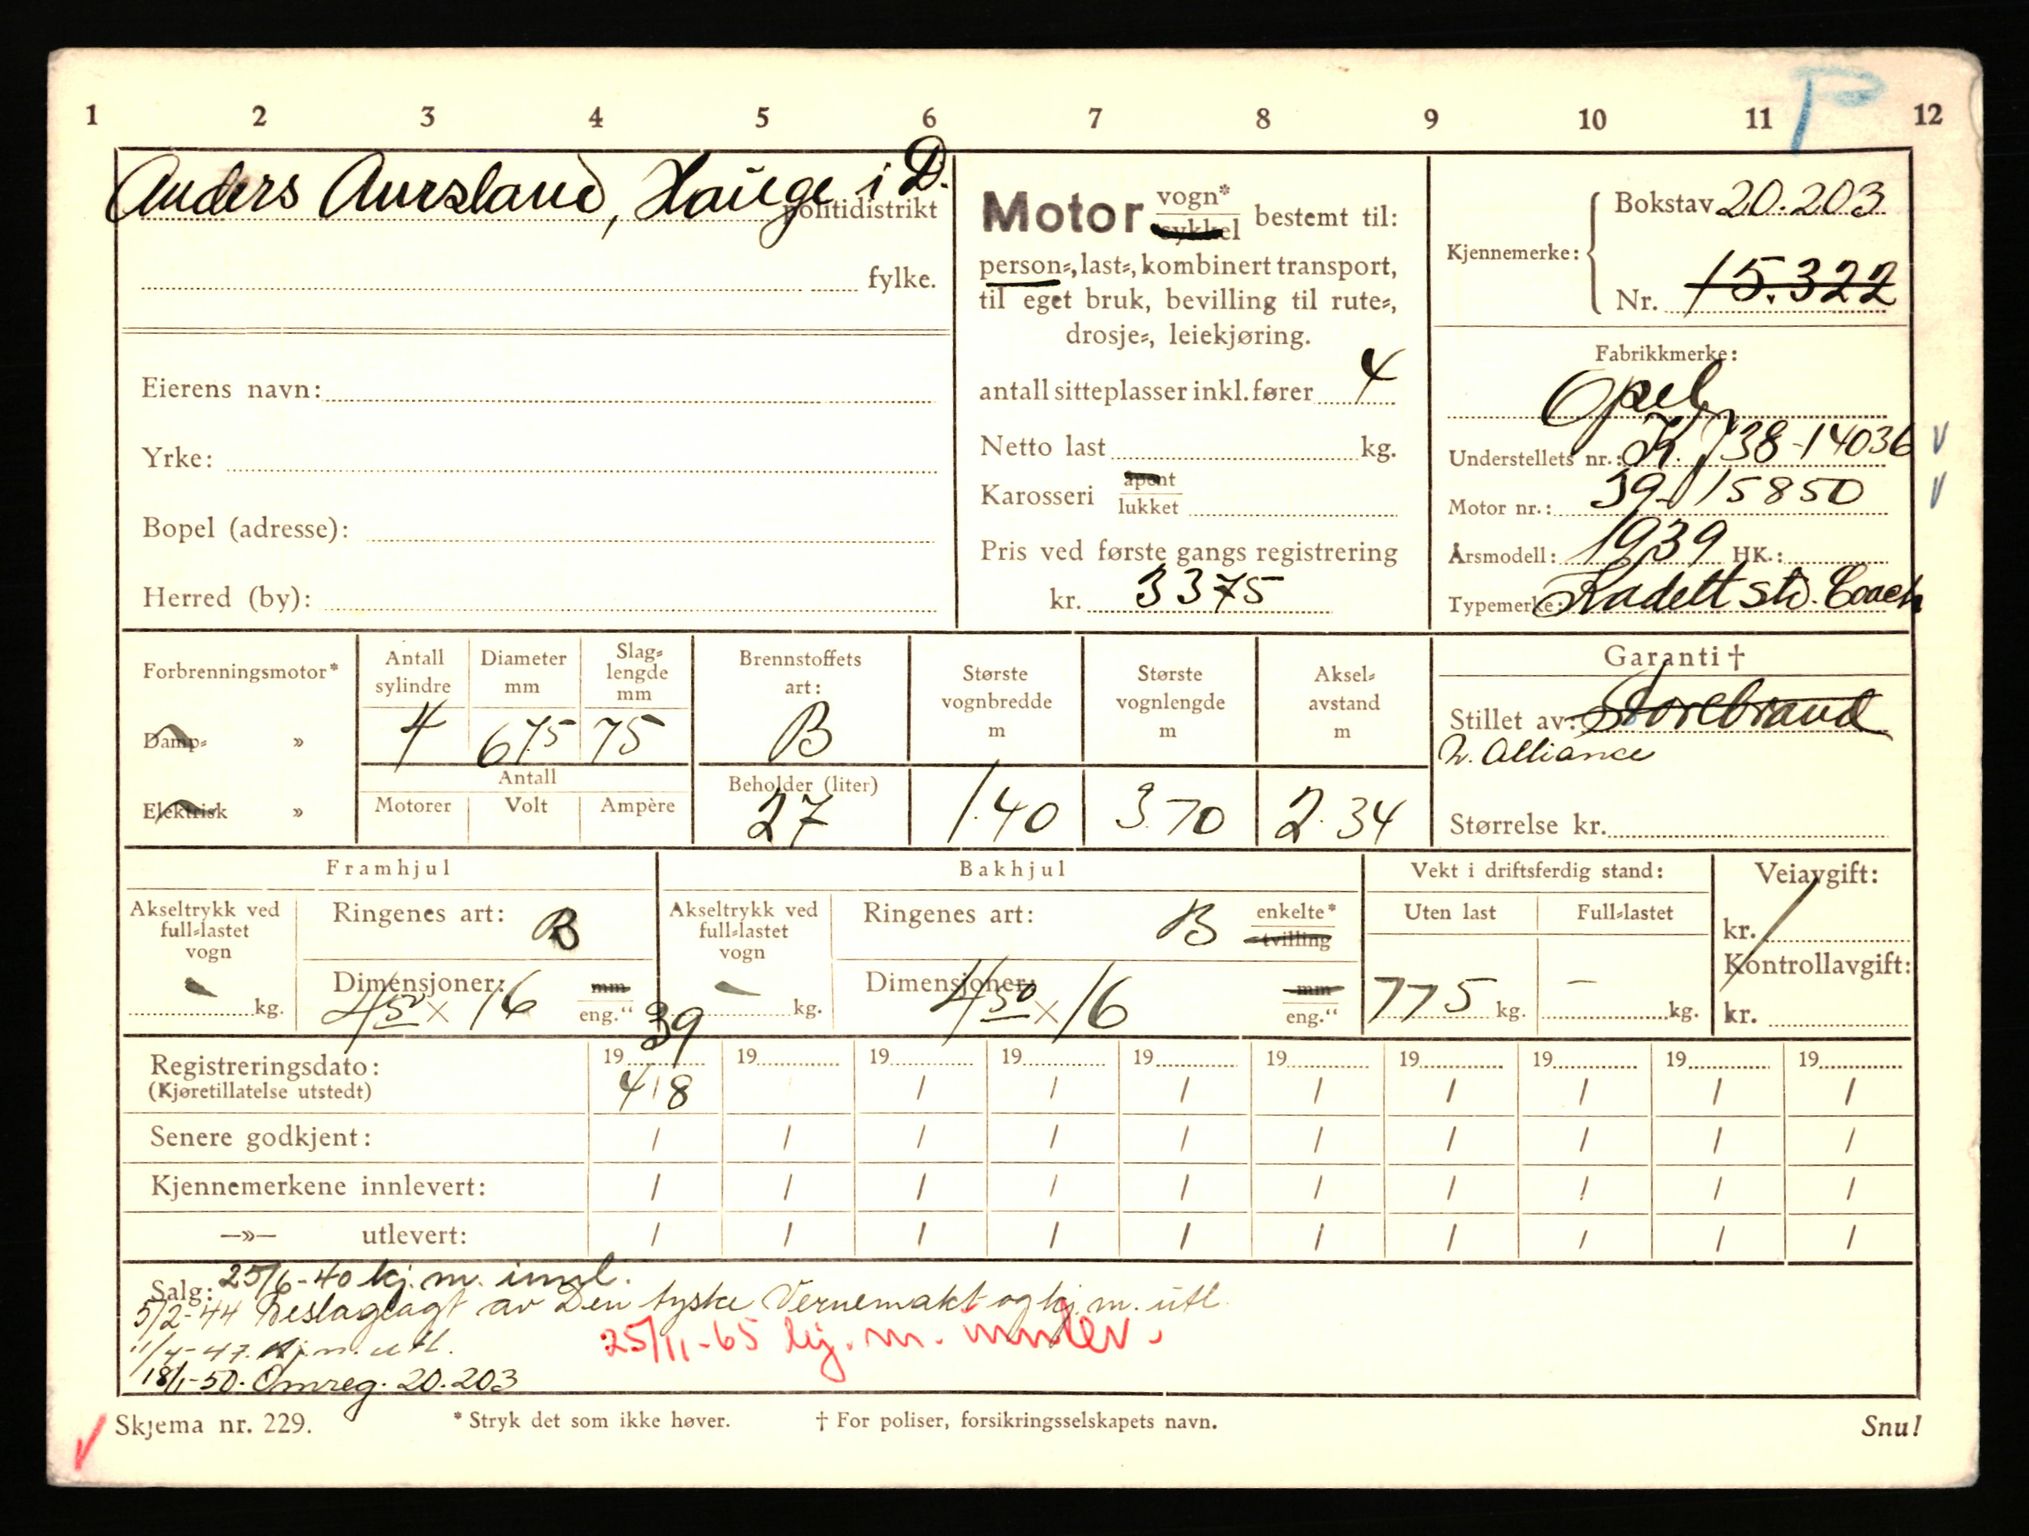 P
1 2 3 4 5 6 7 8 9 10 11 12
Anders Aursland, Hauge i D.
politidistrikt
fylke.
Eierens navn:
Yrke:
Bopel (adresse):
Herred (by):
Motor vogn* sykkel bestemt til:
person-, last-, kombinert transport,
til eget bruk, bevilling til rute-,
drosje-, leiekjøring.
antall sitteplasser inkl. fører 4
Netto last kg.
Karosseri åpent lukket
Pris ved første gangs registrering
kr. 3375
Kjennemerke: Bokstav 20.203
Nr. 15.322
Fabrikkmerke:
Opel
Understellets nr.: K.J 38-14036
Motor nr.: 39-15850
Årsmodell: 1939 HK.:
Typemerke: Kadett std. Coach
Forbrenningsmotor*
Damp- »
Elektrisk »
Antall sylindre
4
Diameter mm
675
Slag-lengde mm
75
Antall
Motorer Volt Ampère
Brennstoffets art:
B
Beholder (liter)
27
Største vognbredde m
1.40
Største vognlengde m
3.70
Aksel-avstand m
2.34
Garanti †
Stillet av: Storebrand
2. Alliance
Størrelse kr.
Framhjul
Akseltrykk ved full-lastet vogn
- kg.
Ringenes art: B
Dimensjoner: mm
450 x 16 eng."
Bakhjul
Akseltrykk ved full-lastet vogn
- kg.
Ringenes art: B enkelte* tvilling
Dimensjoner: mm
450 x 16 eng."
Vekt i driftsferdig stand:
Uten last Full-lastet
775 kg. - kg.
Veiavgift:
kr.
Kontrollavgift:
kr.
Registreringsdato: 19 39 19 19 19 19 19 19 19 19 19
(Kjøretillatelse utstedt) 4/8 / / / / / / / /
Senere godkjent: / / / / / / / / / /
Kjennemerkene innlevert: / / / / / / / / / /
—»— utlevert: / / / / / / / / / /
Salg: 25/6-40 kj. m. innl.
5/2-44 Beslaglagt av Den tyske Vernemakt og kj. m. utl.
11/4-47. Kj. m. utl.
25/11-65 kj. m. innlev.
18/1-50. Omreg. 20.203
Skjema nr. 229.
* Stryk det som ikke høver.
† For poliser, forsikringsselskapets navn.
Snu!